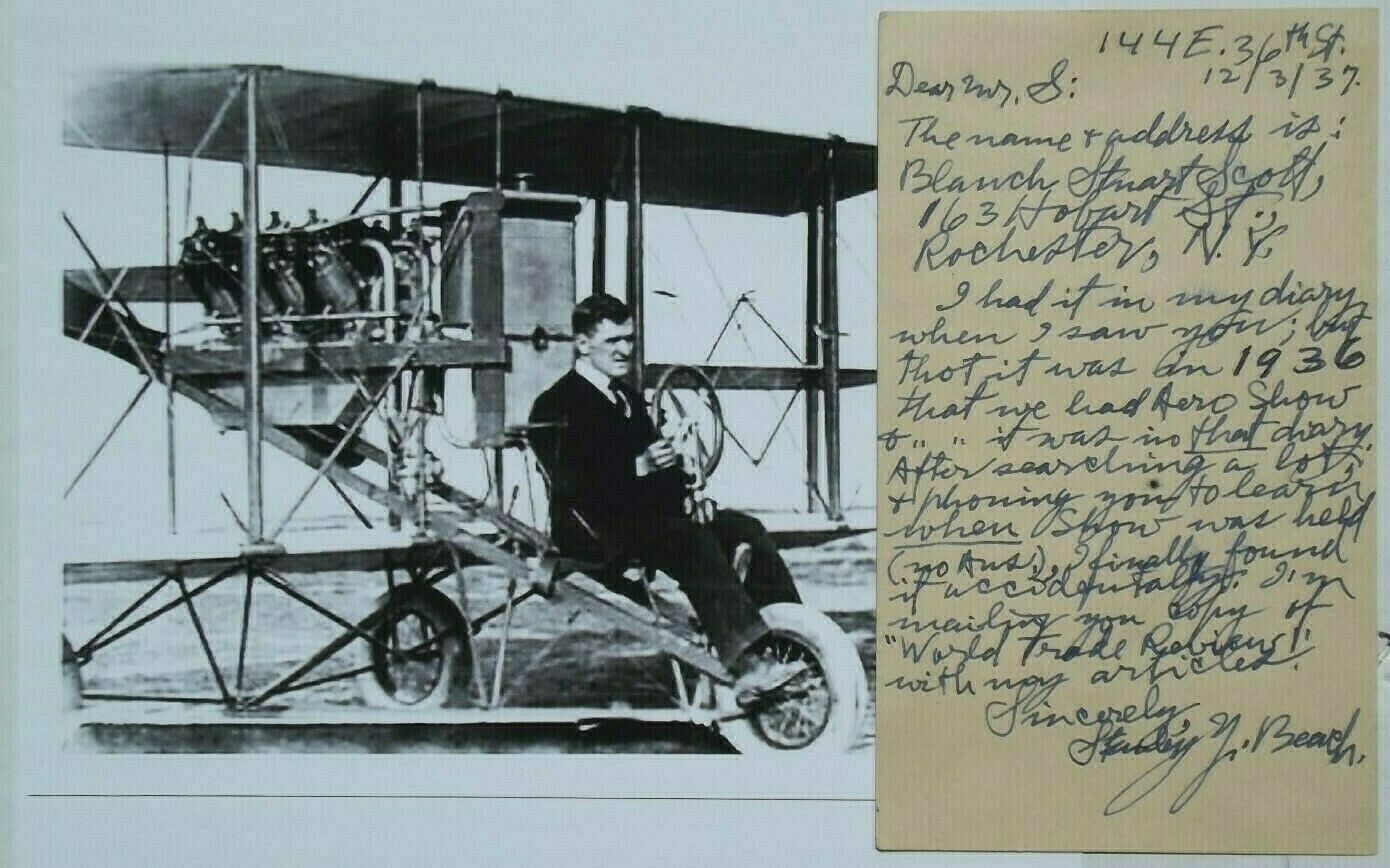 144 E. 36th St.
12/3/37.
Dear Mr. S:
The name & address is:
Blanch Stuart Scott,
163 Hobart St.,
Rochester, N.Y.
I had it in my diary
when I saw you; but
thot it was in 1936
that we had Aero Show
& " " it was in that diary.
After searching a lot,
& phoning you to learn
when Show was held
(no Ans.), I finally found
it accidentally. I'm
mailing you copy of
"World Trade Review"
with my articles.
Sincerely,
Stanley Y. Beach.